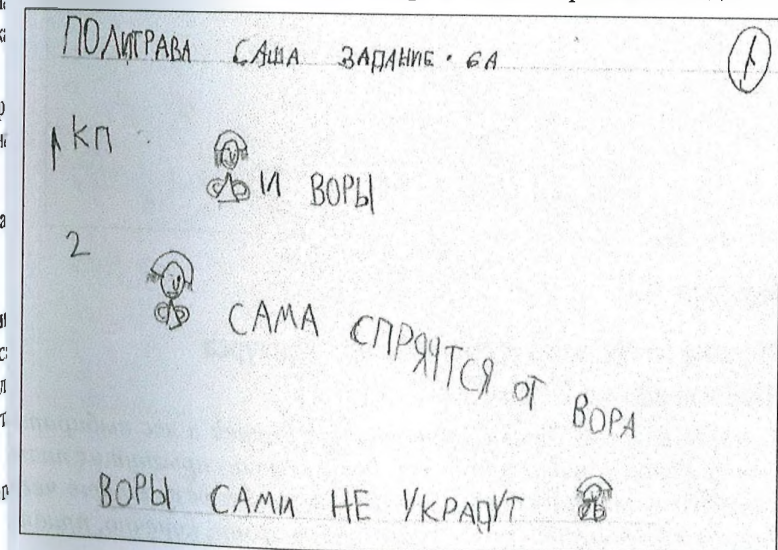 ПОЛИТРАВА САША ЗАДАНИЕ · 6А
1
1 КП
И ВОРЫ
2
САМА СПРЯЧТСЯ ОТ ВОРА
ВОРЫ САМИ НЕ УКРАДУТ